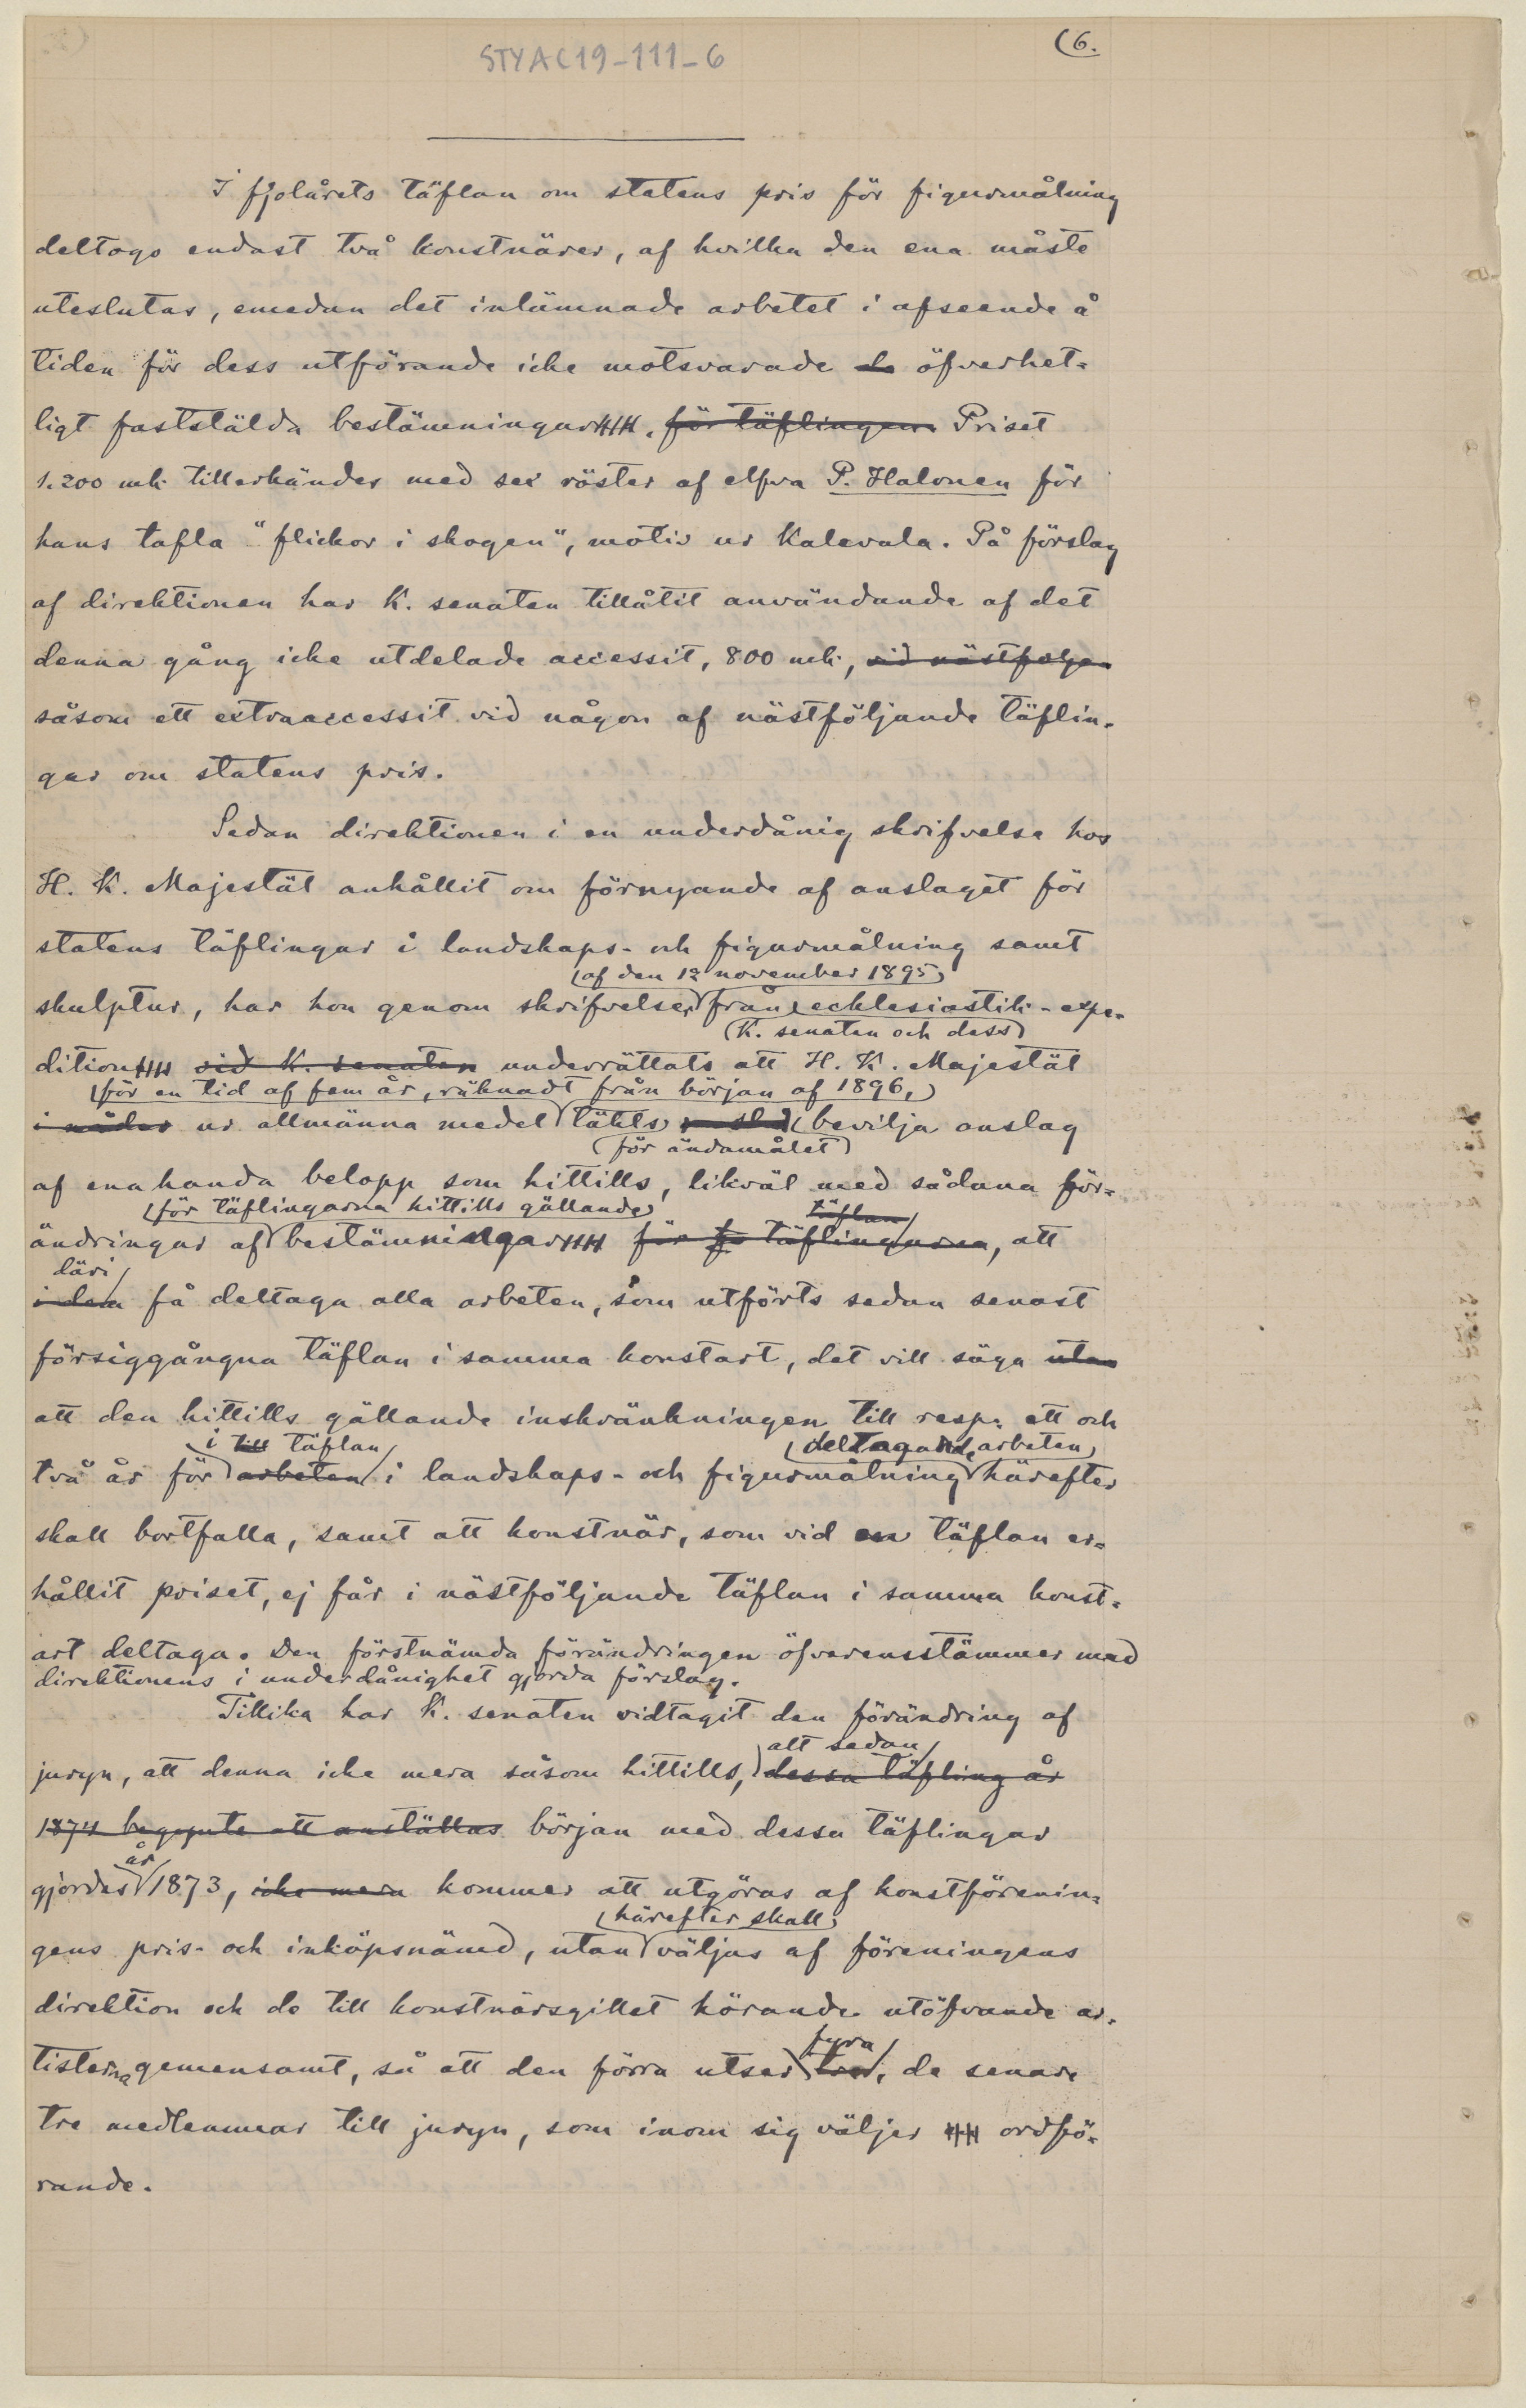 STYAC19-111-6
(6.
I fjolårets täflan om statens pris för figurmålning
deltogo endast två konstnärer, af hvilka den ena måste
uteslutas, emedan det inlämnade arbetet i afseende å
tiden för dess utförande icke motsvarade de öfverhet-
ligt faststälda bestämningar. för täflingen. Priset
1.200 mk tillerkändes med sex röster af elfva P. Halonen för
hans tafla "flickor i skogen", motiv ur Kalevala. På förslag
af direktionen har K. senaten tillåtit användande af det
denna gång icke utdelade accessit, 800 mk, vid nästföljan
såsom ett extraaccessit vid någon af nästföljande täflin-
gar om statens pris.
Sedan direktionen i en underdånig skrifvelse hos
H. K. Majestät anhållit om förnyande af anslaget för
statens täflingar i landskaps- och figurmålning samt
(af den 12 november 1895)
skulptur, har hon genom skrifvelse från ecklesiastik-expe-
(K. senaten och dess)
dition vid K. senaten underrättats att H. K. Majestät
(för en tid af fem år, räknadt från början af 1896,)
i nåder ur allmänna medel täkts bevilja anslag
(för ändamålet)
af enahanda belopp som hittills, likväl med sådana för-
(för täflingarna hittills gällande) täflan
ändringar af bestämningar för täflingarna, att
däri
i dem få deltaga alla arbeten, som utförts sedan senast
försiggångna täflan i samma konstart, det vill säga utan
att den hittills gällande inskränkningen till resp. ett och
i till täflan (deltagande arbeten)
två år för arbeten i landskaps- och figurmålning härefter
skall bortfalla, samt att konstnär, som vid en täflan er-
hållit priset, ej får i nästföljande täflan i samma konst-
art deltaga. Den förstnämda förändringen öfverensstämmer med
direktionens i underdånighet gjorda förslag.
Tillika har K. senaten vidtagit den förändring af
alt sedan
juryn, att denna icke mera såsom hittills, dessa täfling år
1874 begynte att anställas början med dessa täflingar
år
gjordes 1873, icke mera kommer att utgöras af konstförenin-
(härefter skall)
gens pris- och inköpsnämd, utan väljas af föreningens
direktion och de till konstnärsgillet hörande utöfvande ar-
fyra
tisterna gemensamt, så att den förra utser tre, de senare
tre medlemmar till juryn, som inom sig väljer ordfö-
rande.